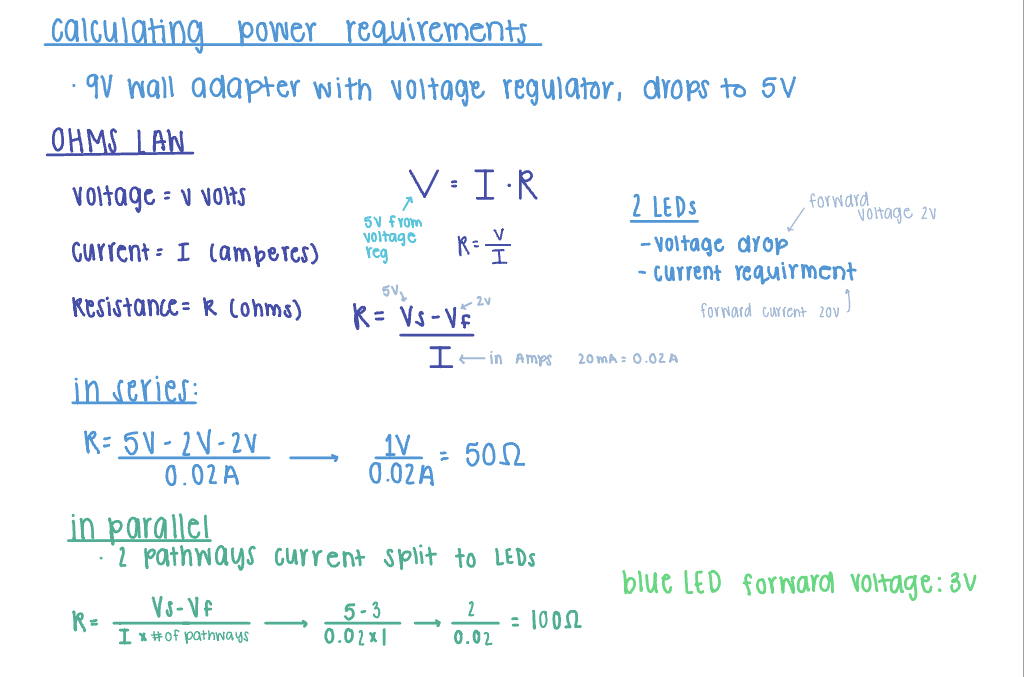 calculating power requirements
· 9V wall adapter with voltage regulator, drops to 5V
OHMS LAW
voltage = v volts
current = I (amperes)
Resistance = R (ohms)
V = I · R
5V from
voltage
reg
R = V
I
5V
2V
R = Vs - Vf
I
in Amps 20mA = 0.02A
2 LEDs
- voltage drop
- current requirment
forward
voltage 2V
forward current 20v
in series:
R = 5V - 2V - 2V
0.02A
1V
0.02A
= 50Ω
in parallel
· 2 pathways current split to LEDs
R = Vs - Vf
I x # of pathways
5 - 3
0.02 x 1
2
0.02
= 100Ω
blue LED forward voltage: 3V